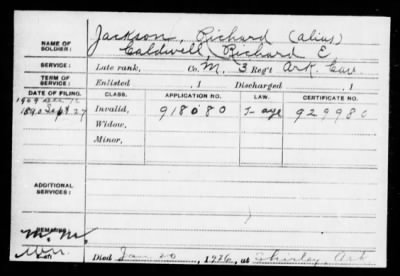 Jackson, Richard (alias)
NAME OF SOLDIER: Caldwell, Richard E
SERVICE: Late rank, Co. M, 3 Reg't Ark. Cav
TERM OF SERVICE: Enlisted , 1 Discharged , 1
DATE OF FILING. CLASS. APPLICATION NO. LAW. CERTIFICATE NO.
1890 Sept 27 Invalid, 918080 929980
Widow,
Minor,
ADDITIONAL SERVICES:
REMARKS:
Died Jan. 20, 1926, at Shirley, Ark